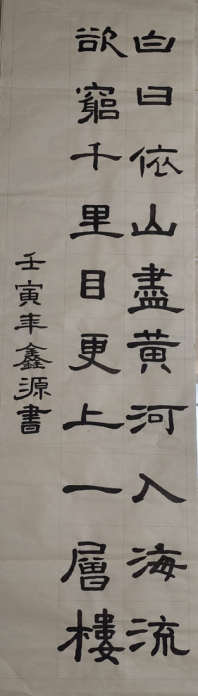 白日依山盡黃河入海流
欲窮千里目更上一層樓
壬寅年鑫源書